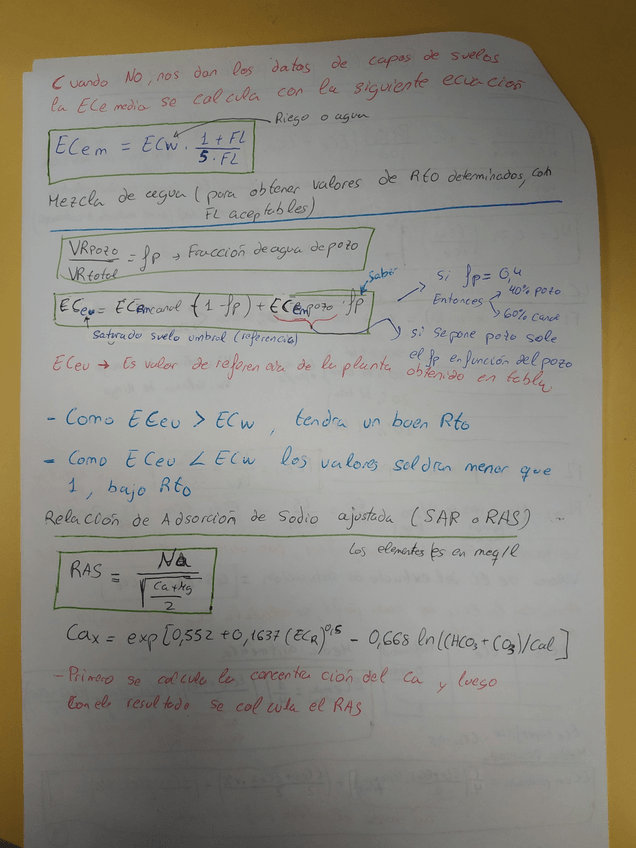 Cuando No, nos dan los datos de capas de suelos
la ECe media se calcula con la siguiente ecuación
Riego o agua
ECem = ECw · (1 + FL) / (5 · FL)
Mezcla de agua (para obtener valores de Rto determinados, con
FL aceptables)
VRpozo / VRtotal = fp → Fracción de agua de pozo
Saber
ECeu = ECem canal · (1 - fp) + ECem pozo · fp
si fp = 0,4
Entonces → 40% pozo
→ 60% canal
saturado suelo umbral (referencia)
si se pone pozo sale
el fp en función del pozo
ECeu → Es valor de referencia de la planta obtenido en tabla
- Como ECeu > ECw, tendra un buen Rto
- Como ECeu < ECw los valores saldran menor que
1, bajo Rto
Relación de Adsorción de Sodio ajustada (SAR o RAS) ...
Los elementos es en meq/l
RAS = Na / √((Ca + Mg) / 2)
Cax = exp [0,552 + 0,1637 (ECR)^0,5 - 0,668 ln((HCO3 + CO3)/Ca)]
- Primero se calcula la concentración del Ca y luego
con el resultado se calcula el RAS